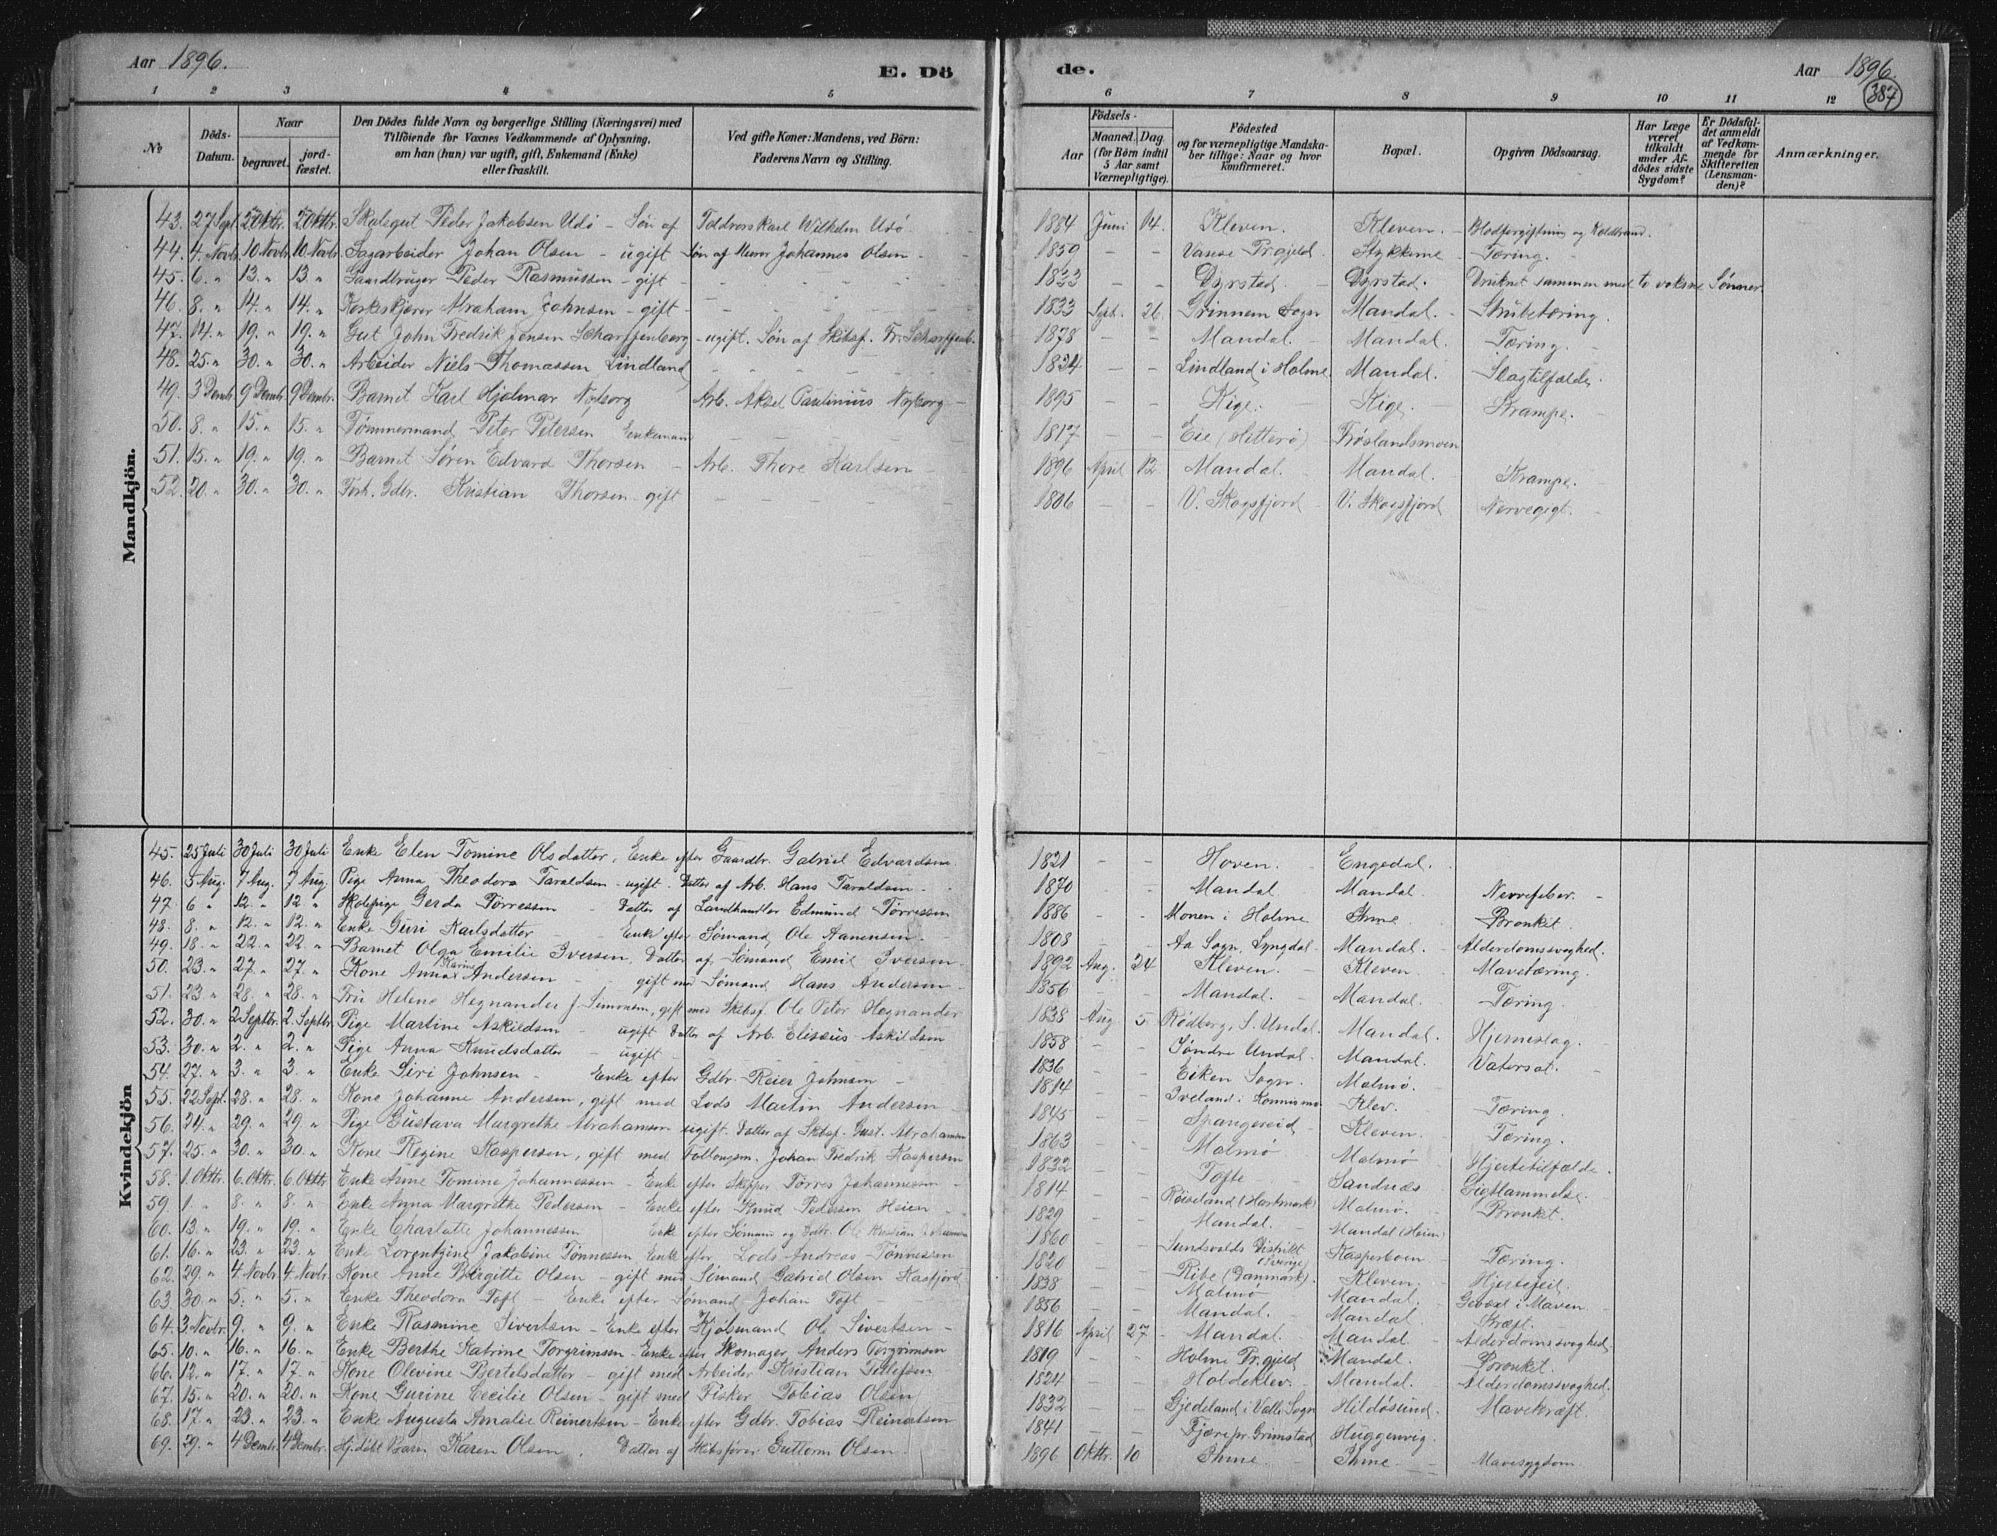 Aar 1896. E. Dö de. Aar 1896.
387
1 2 3 4 5 6 7 8 9 10 11 12
No
Döds-Datum.
Naar begravet. jord-fæstet.
Den Dödes fulde Navn og borgerlige Stilling (Næringsvei) med Tilföiende for Voxnes Vedkommende af Oplysning, om han (hun) var ugift, gift, Enkemand (Enke) eller fraskilt.
Ved gifte Koner: Mandens, ved Börn: Faderens Navn og Stilling.
Födsels-
Aar Maaned. Dag. (for Börn indtil 5 Aar samt Værnepligtige).
Födested og for værnepligtige Mandskaber tillige: Naar og hvor konfirmeret.
Bopæl.
Opgiven Dödsaarsag.
Har Læge været tilkaldt under Afdödes sidste Sygdom?
Er Dödsfaldet anmeldt af Vedkommende for Skifteretten (Lensmanden)?
Anmærkninger.
Mandkjön.
43. 27 Sept. 2 Oktbr. 2 Oktbr. Skolegut Peder Jakobsen Udö - Søn af Toldroerskarl Wilhelm Udö 1884 Juni 14. Kleven. Kleven. Blodforgiftning og Koldbrand.
44. 4. Novbr. 10 Novbr. 10 Novbr. Sagarbeider Johan Olsen - ugift Søn af Murer Johannes Olsen - 1859 - - Vanse Prgjeld. Stykkerne - Tæring.
45. 6. " 13. " 13 " Gaardbruger Peder Rasmussen - gift - 1833 - - Dyrstad. Dyrstad. Druknet sammen med to voksne Sønner.
46. 8. " 14. " 14. " Korkskjærer Abraham Johnsen - gift - 1833 Sept. 26. Grinnem Sogn Mandal. - Strubetæring.
47. 14. " 19. " 19. " Gut John Fredrik Jensen Scharffenberg - ugift. Søn af Skibsf. Fr. Scharffenb. 1878 - - Mandal. - Mandal. Tæring.
48. 25. " 30. " 30. " Arbeider Niels Thomassen Lindland 1824 - - Lindland i Holme Mandal. Slagtilfælde.
49. 3 Dembr. 9 Dembr. 9 Dembr. Barnet Karl Hjalmar Nyborg Arb. Aksel Paulinius Nyborg - 1895 - - Kige. Kige. Krampe.
50. 8. " 15. " 15. " Tømmermand Peter Petersen Enkemand 1817 - - Eie (Hitterø) Frøslandsmoen
51. 15. " 19. " 19. " Barnet Søren Edvard Thorsen - Arb. Thore Karlsen - 1896 April 12. Mandal. Mandal. Krampe.
52. 20. " 30. " 30. " Forh. Gdbr. Kristian Thorsen - gift 1806 - - V. Skogsfjord V. Skogsfjord Nervegigt.
Kvindekjön
45. 25 Juli 30 Juli 30 Juli Enke Elen Tomine Olsdatter, Enke efter Gaardbr. Gabriel Edvardsen. 1821 - - Hoven. - Engedal.
46. 5 Aug. 7 Aug. 7 Aug. Pige Anna Theodora Taraldsen - ugift. Datter af Arb. Hans Taraldsen - 1870 - - Mandal - Mandal Nervefeber.
47. 6 " 12 " 12 " Skolepige Gerda Tørressen - Datter af Landhandler Edmund Tørressen 1886 - - Monen i Holme Ihme Bronket.
48. 8. " 12. " 12. " Enke Guri Karlsdatter - Enke efter Sømand Ole Aanensen. 1808 - - Aa Sogn. Lyngdal. Mandal. Alderdomssvaghed.
49. 18. " 22. " 22. " Barnet Olga Emilie Iversen, Datter af Sømand Emil Iversen. 1892 Aug. 24 Kleven. - Kleven. Mavetæring.
50. 23. " 27. " 27. " Kone Anna Karine Andersen - gift med Sømand Hans Andersen - 1856 - - Mandal. - Mandal. Tæring.
51. 23. " 28. " 28. " Fru Helene Hegnander f. Simonsen, gift med Skibsf. Ole Peter Hegnander 1838 Aug. 5. Rødberg, S. Undal. Mandal. Hjerneslag.
52. 30. " 2 Septbr. 2. Septbr. Pige Martine Askildsen - ugift Datter af Arb. Elisæus Askildsen 1858 - - Søndre Undal. Mandal. Vatersot.
53. 30. " 2. " 2. " Pige Anna Knudsdatter - ugift - 1836 - - Eiken Sogn. Malmø.
54. 27. " 3. " 3. " Enke Siri Johnsen - Enke efter Gdbr. Reier Johnsen - 1814 - - Iveland i Konnismo Klev. Tæring.
55. 22 Sept. 28. " 28. " Kone Johanne Andersen, gift med Lods Martin Andersen - 1845 - - Spangereid. Kleven. Tæring.
56. 24. " 29. " 29. " Pige Gustava Margrethe Abrahamsen ugift. Datter af Skibsf. Gust. Abrahamsen 1863 - - Malmø Malmø Hjertetilfælde.
57. 25. " 30. " 30. " Kone Regine Kaspersen, gift med Johan Fredrik Kaspersen 1832 - - Tofte Sandnæs Gigt
58. 1. Oktbr. 6. Oktbr. 6 Oktbr. Enke Anne Tomine Johannessen - Enke efter Skipper Tørres Johannessen - 1814 - - Røiseland (Harkmark) Malmø. Bronket.
59. 1. " 8 " 8. " Enke Anna Margrethe Pedersen - Enke efter Knud Pedersen Heien - 1829 - - Mandal. Mandal (Heien)
60. 13. " 19. " 19. " Enke Charlotte Johannessen Enke efter Sømand og Ole Kristian Johannessen 1860 - - Sundsvalds Distrikt (Sverige) Kasperboen Tæring.
61. 16. " 23. " 23. " Enke Lorentzine Jakobine Tønnessen Enke efter Lods Andreas Tønnessen 1820 - - Ribe (Danmark). Kleven. Hjertefeil.
62. 29. " 4. Novbr. 4. Novbr. Kone Anne Birgitte Olsen - gift med Sømand Gabriel Olsen 1838 - - Malmø Mandal. Gevæxt i Maven.
63. 30. " 5. " 5. " Enke Theodora Toft - Enke efter Sømand Johan Toft 1856 - - Mandal. Mandal Kræft.
64. 3 Novbr. 9. " 9. " Enke Rasmine Sivertsen - Enke efter Kjøbmand Ole Sivertsen - 1816 April 27. Mandal. Mandal. Alderdomssvaghed.
65. 10. " 16. " 16. " Enke Berthe Katrine Torgrimsen - Enke efter Skomager Anders Torgrimsen 1819 - - Holme Prgjeld. Mandal. Bronket.
66. 12. " 17. " 17. " Kone Olevine Bertelsdatter - gift med Arbeider Kristian Detlefsen 1824 - - Holdeklev. Mandal. Alderdomssvaghed.
67. 15. " 20. " 20. " Kone Gurine Cecilie Olsen - gift med Fisker Tobias Olsen 1832 - - Gjedeland i Valle Sogn Hildøsund. Mavekræft.
68. 17. " 23. " 23. " Enke Augusta Amalie Reinertsen - Enke efter Gdbr. Tobias Reinertsen 1841 - - Fjære pr. Grimstad Huggenvig
69. 29. " 4 Dembr. 4 Dembr. Hj. døbt Barn Karen Olsen. Datter af Skibsfører Guttorm Olsen. 1896 Oktbr. 10 Ihme. Ihme Mavesygdom.